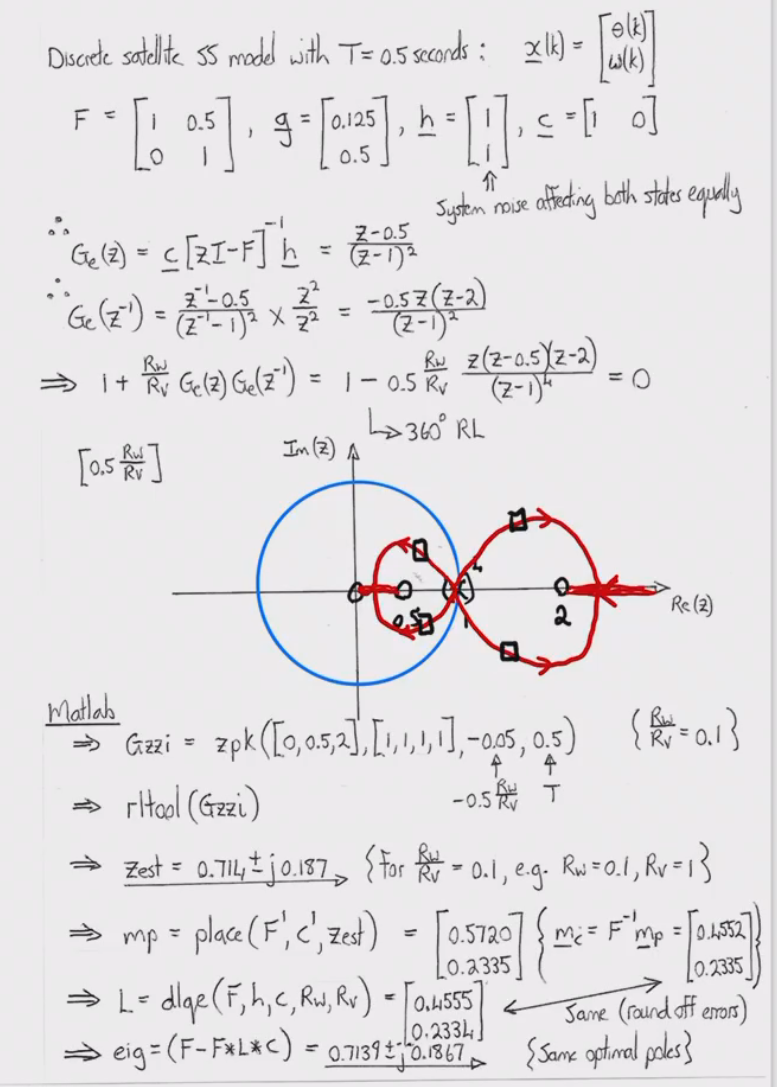 Discrete satellite SS model with T = 0.5 seconds : x(k) = [θ(k) ω(k)]
F = [1 0.5 0 1] , g = [0.125 0.5] , h = [1 1] , c = [1 0]
⇑
System noise affecting both states equally
∴ Ge(z) = c [zI-F]⁻¹ h = z-0.5 / (z-1)²
∴ Ge(z⁻¹) = z⁻¹-0.5 / (z⁻¹-1)² × z²/z² = -0.5z(z-2) / (z-1)²
⇒ 1 + Rw/Rv Ge(z) Ge(z⁻¹) = 1 - 0.5 Rw/Rv z(z-0.5)(z-2) / (z-1)⁴ = 0
↳ 360° RL
[0.5 Rw/Rv]
Im(z)
4
0.5 1 2 Re(z)
Matlab
⇒ Gzzi = zpk([0,0.5,2],[1,1,1,1],-0.05,0.5) {Rw/Rv = 0.1}
-0.5 Rw/Rv T
⇒ rltool(Gzzi)
⇒ Zest = 0.714 ± j0.187 {for Rw/Rv = 0.1, e.g. Rw=0.1, Rv=1}
⇒ mp = place(F',c',zest) = [0.5720 0.2335] {mc = F⁻¹mp = [0.4552 0.2335]}
⇒ L = dlqe(F,h,c,Rw,Rv) = [0.4555 0.2334]
Same (round off errors)
⇒ eig=(F-F*L*c) = 0.7139 ± j0.1867 {Same optimal poles}